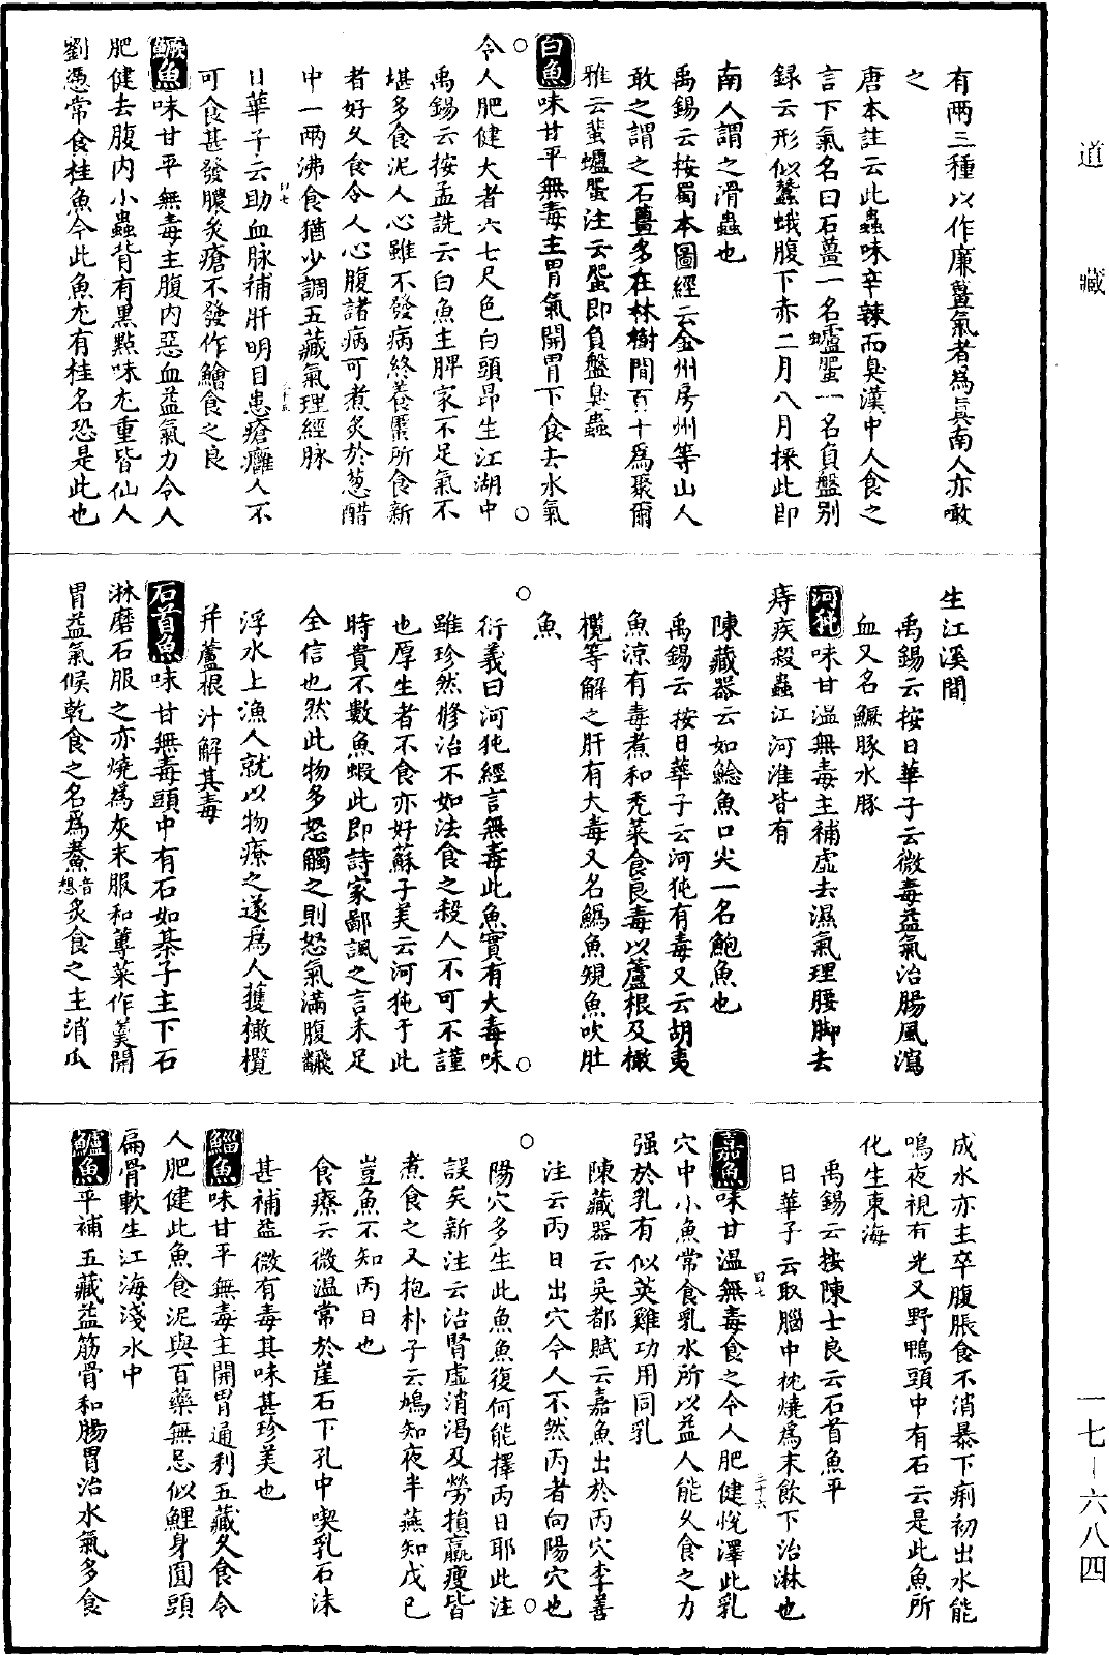 道藏
有兩三種以作廉薑氣者為眞南人亦噉
之
唐本註云此蟲味辛辣而臭漢中人食之
言下氣名曰石薑一名蠦蜰一名負盤別
録云形似蠶蛾腹下赤二月八月採此即
南人謂之滑蟲也
禹錫云按蜀本圖經云金州房州等山人
敢之謂之石薑多在林樹間百十爲聚爾
雅云蜚蠦蜰注云蜰即負盤臭蟲
白魚味甘平無毒主胃氣開胃下食去水氣
令人肥健大者六七尺色白頭昂生江湖中
禹錫云按孟詵云白魚主脾家不足氣不
堪多食泥人心雖不發病終養䘌所食新
者好久食令人心腹諸病可煮炙於葱醋
中一兩沸食猶少調五藏氣理經脉
日華子云助血脉補肝明目患瘡癰人不
可食甚發膿炙瘡不發作鱠食之良
鱖魚味甘平無毒主腹內惡血益氣力令人
肥健去腹內小蟲背有黒點味尤重昔仙人
劉憑常食桂魚今此魚尤有桂名恐是此也
生江溪間
禹錫云按日華子云微毒益氣治腸風瀉
血又名鱖豚水豚
河㹠味甘溫無毒主補虛去濕氣理腰脚去
痔疾殺蟲江河淮皆有
陳藏器云如鯰魚口尖一名鮑魚也
禹錫云按日華子云河㹠有毒又云胡夷
魚涼有毒煮和禿菜食良毒以蘆根及橄
欖等解之肝有大毒又名鰞魚䂓魚吹肚
魚
衍義曰河㹠經言無毒此魚實有大毒味
雖珍然修治不如法食之殺人不可不謹
也厚生者不食亦好蘇子美云河㹠于此
時貴不數魚蝦此即詩家鄙諷之言未足
全信也然此物多怒觸之則怒氣滿腹飜
浮水上漁人就以物療之遂爲人獲橄欖
并蘆根汁解其毒
石首魚味甘無毒頭中有石如棊子主下石
淋磨石服之亦燒爲灰末服和蓴菜作羹開
胃益氣候乾食之名爲鯗音想炙食之主消瓜
成水亦主卒腹脹食不消暴下痢初出水能
鳴夜視有光又野鴨頭中有石云是此魚所
化生東海
禹錫云按陳士良云石首魚平
日華子云取腦中枕燒爲末飲下治淋也
嘉魚味甘溫無毒食之令人肥健悅澤此乳
穴中小魚常食乳水所以益人能久食之力
强於乳有似英雞功用同乳
陳藏器云吳都賦云嘉魚出於丙穴李善
注云丙日出穴今人不然丙者向陽穴也
陽穴多生此魚魚復何能擇丙日耶此注
誤矣新注云治腎虛消渴及勞損羸瘦皆
煮食之又抱朴子云鴆知夜半燕知戊巳
豈魚不知丙日也
食療云微溫常於崖石下孔中喫乳石沫
甚補益微有毒其味甚珍美也
鯔魚味甘平無毒主開胃通利五藏久食令
人肥健此魚食泥與百藥無忌似鯉身圓頭
扁骨軟生江海淺水中
鱸魚平補五藏益筋骨和腸胃治水氣多食
一七—六八四